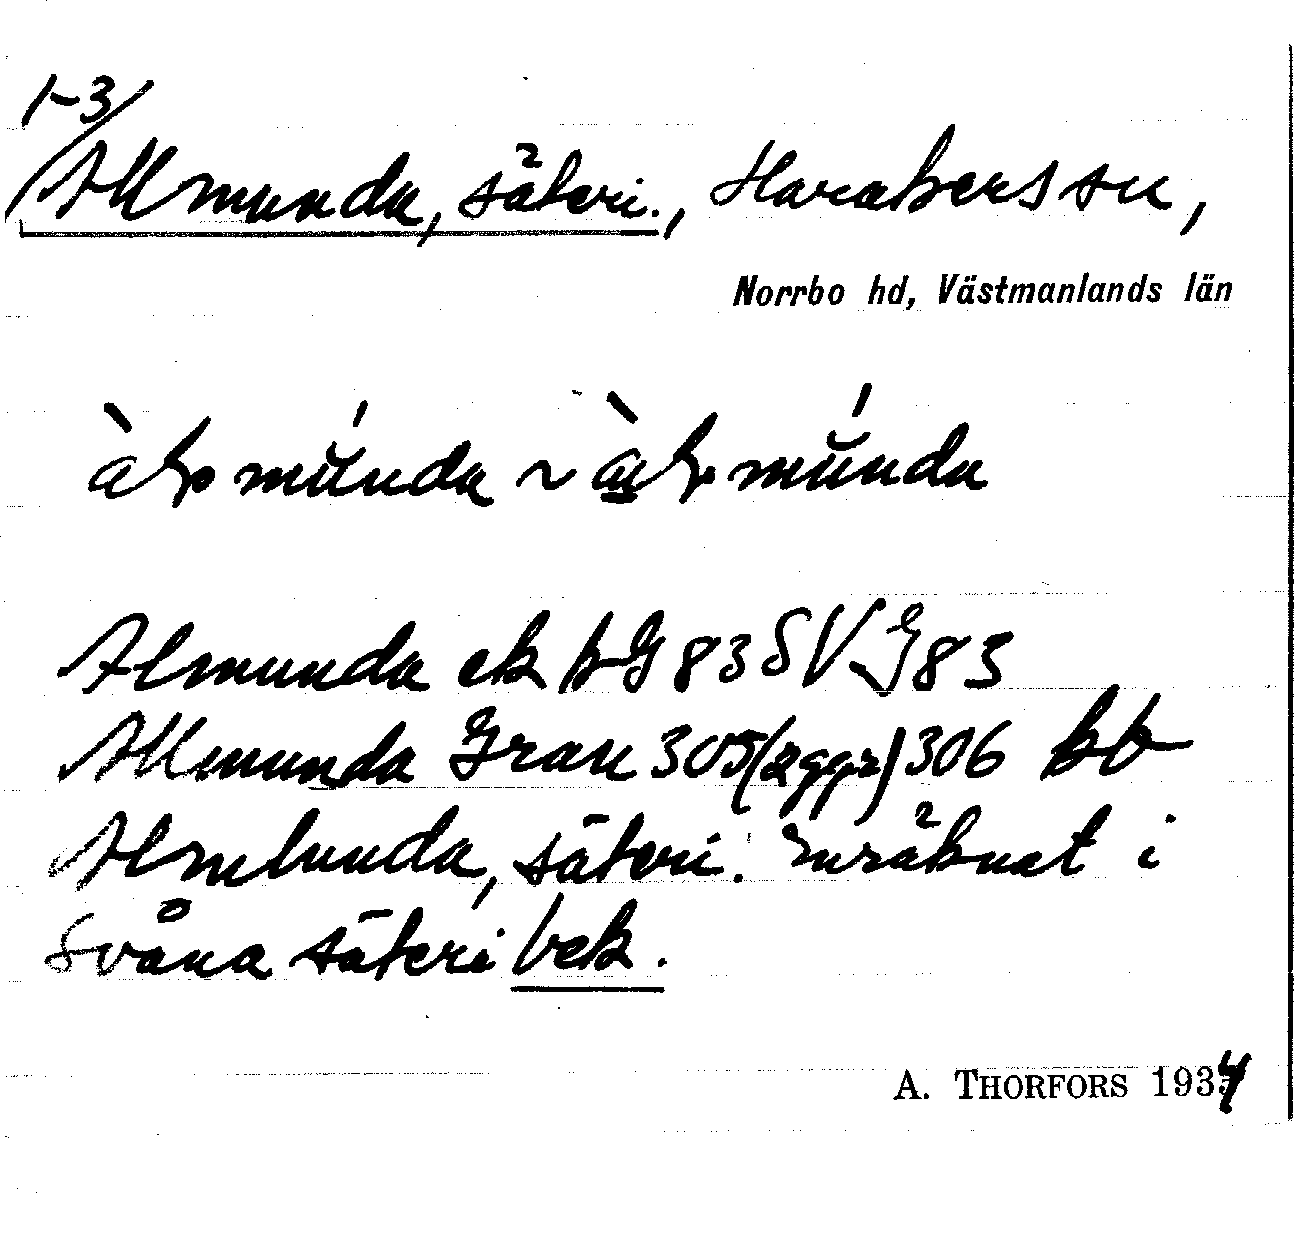 1-3/
Allmunda, säteri., Harakers sn,
Norrbo hd, Västmanlands län
munda ~ munda
Almunda ek bG 83 SV G83
Allmunda Gran 305 (2 ggr) 306 bb
Almlunda, säteri. Inräknat i
Svåna säteri bek.
A. THORFORS 1934